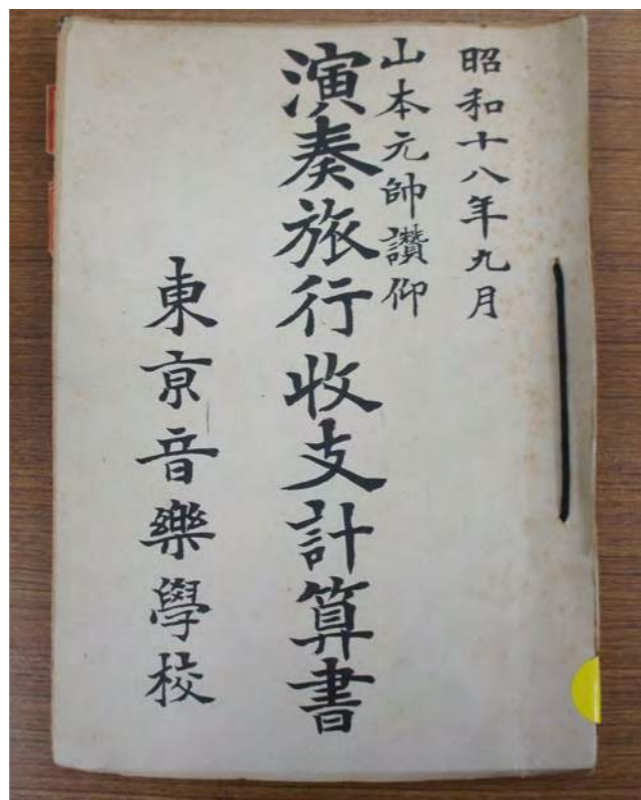 昭和十八年九月
山本元帥讃仰
演奏旅行收支計算書
東京音樂學校